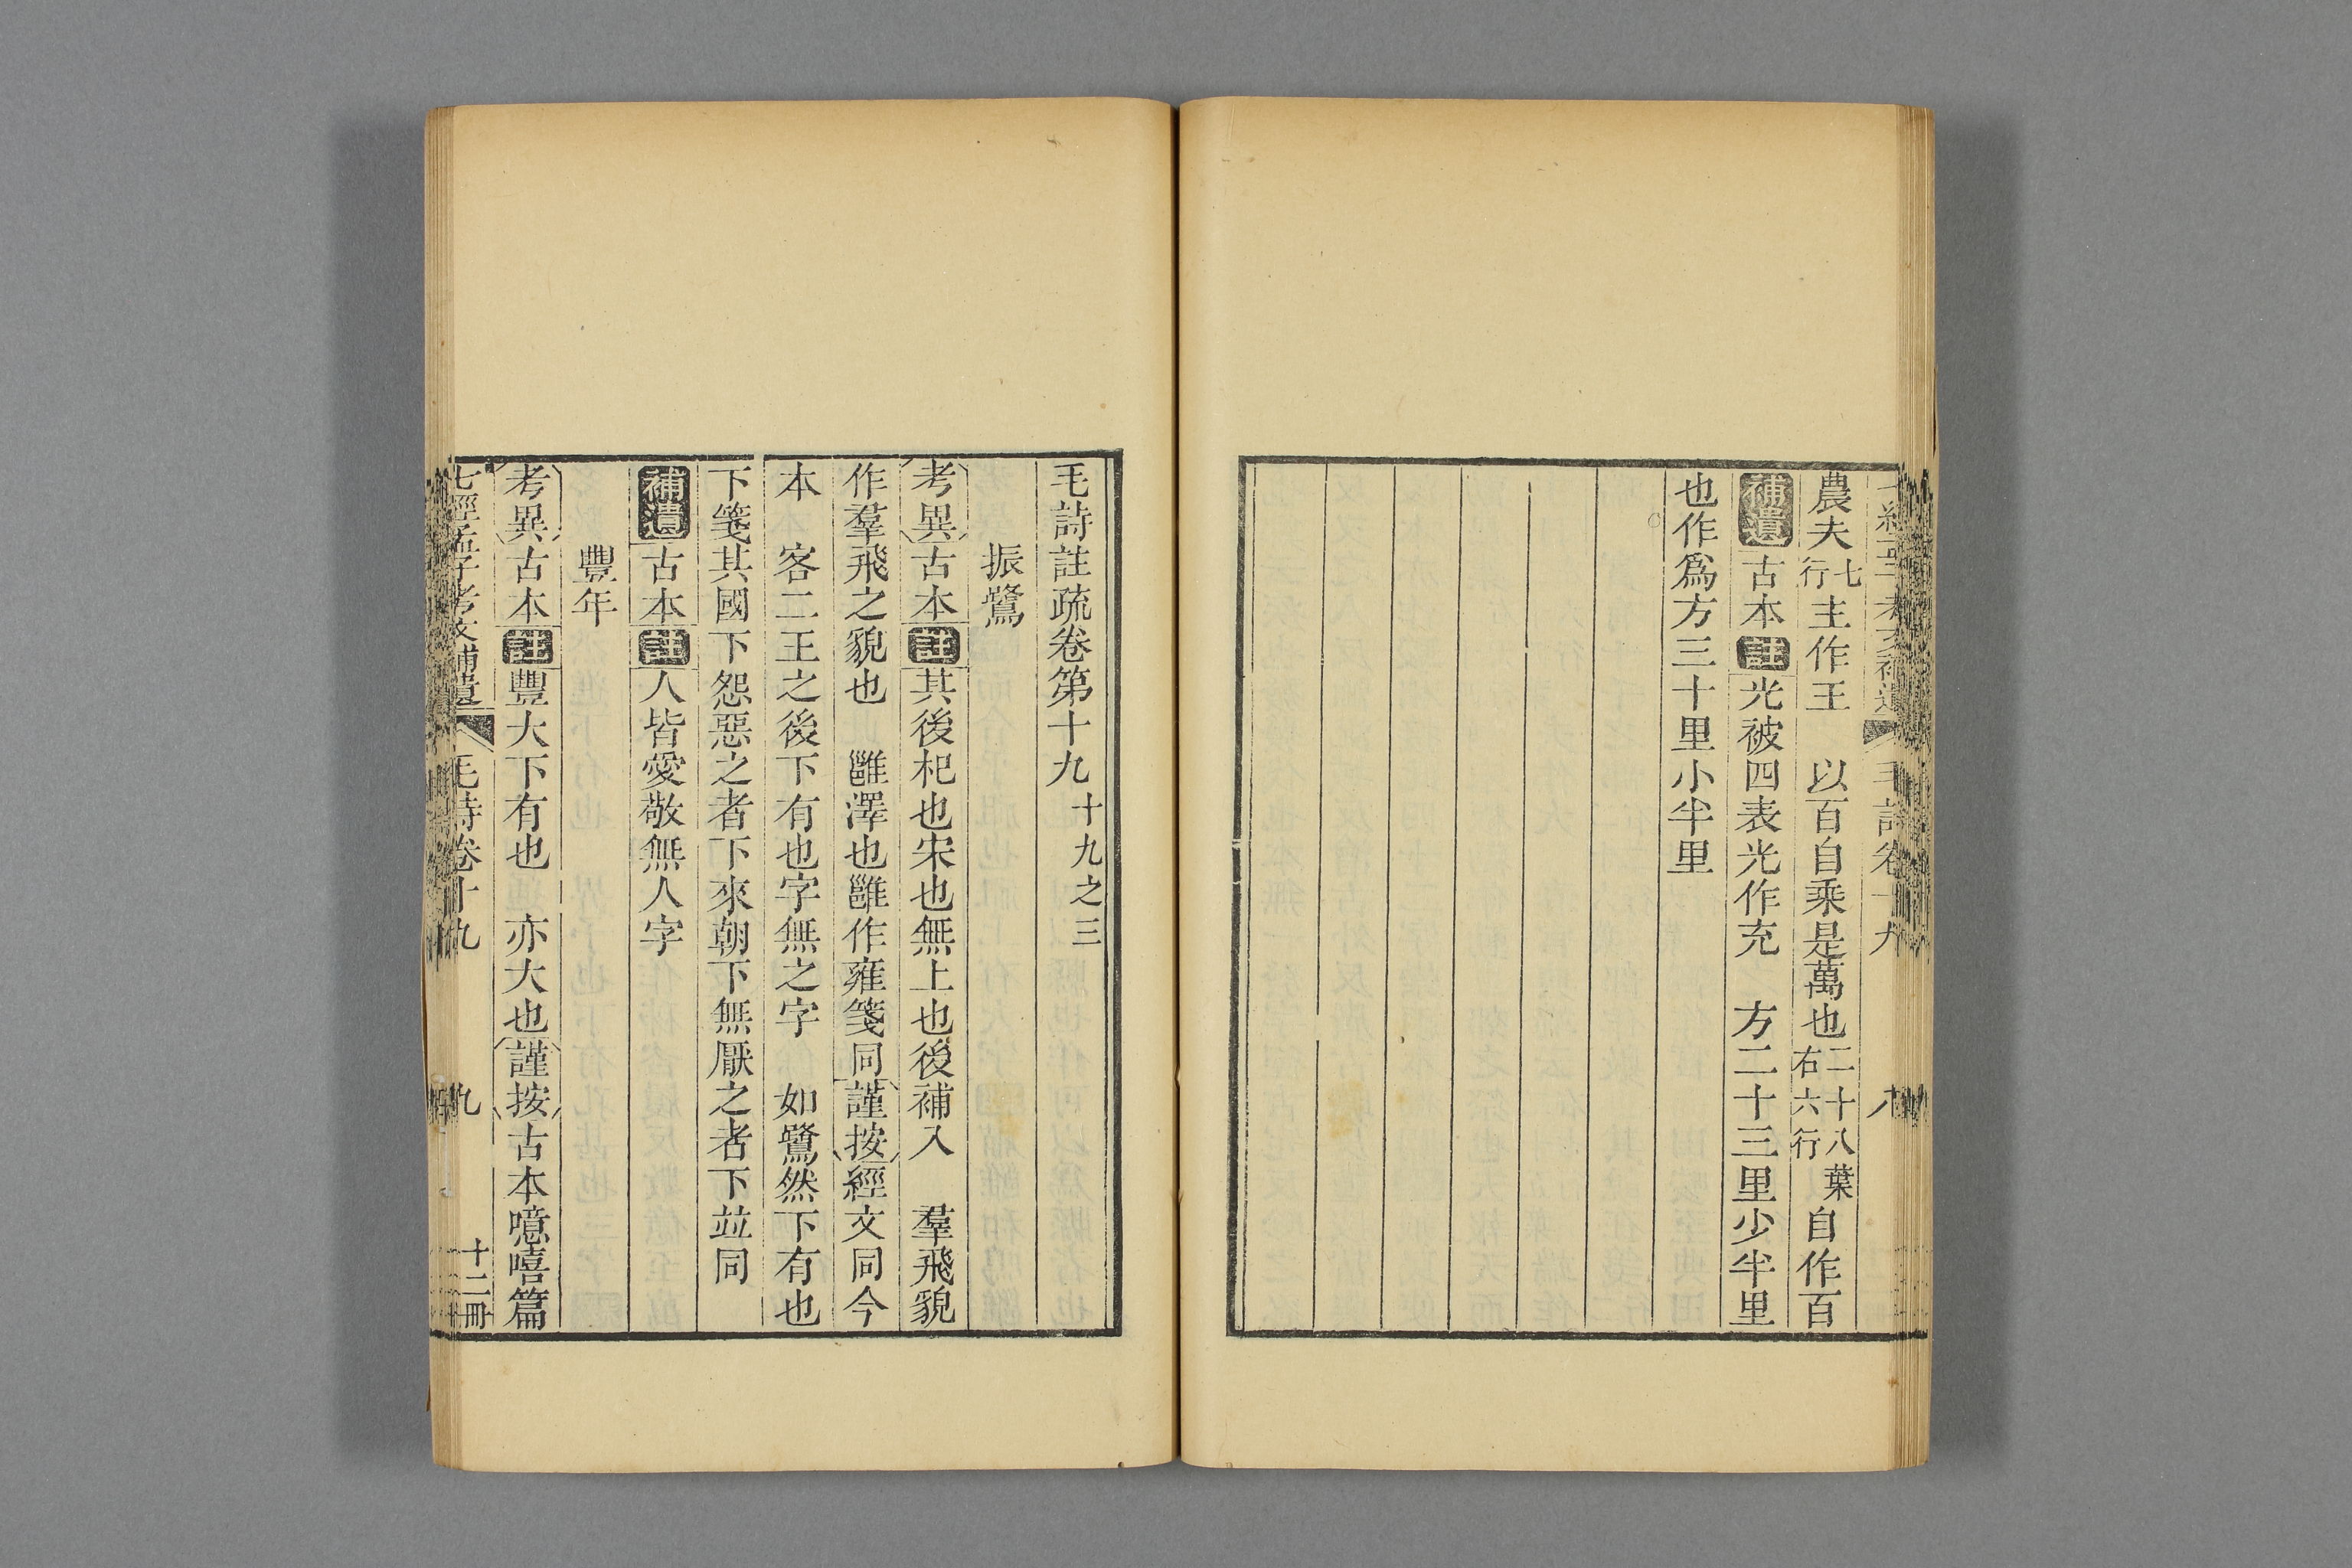 農夫七行主作王　以百自乘是萬也二十八葉右六行自作百
補遺古本註光被四表光作充　方二十三里少半里
也作爲方三十里小半里
毛詩註疏卷第十九十九之三
振鷺
考異古本註其後杞也宋也無上也後補入　羣飛貌
作羣飛之貌也　雝澤也雝作雍箋同謹按經文同今
本　客二王之後下有也字無之字　如鷺然下有也
下箋其國下怨惡之者下來朝下無厭之者下並同
補遺古本註人皆愛敬無人字
豐年
考異古本註豐大下有也　亦大也謹按古本噫嘻篇
七經孟子考文補遺　毛詩卷十九　九　十二冊